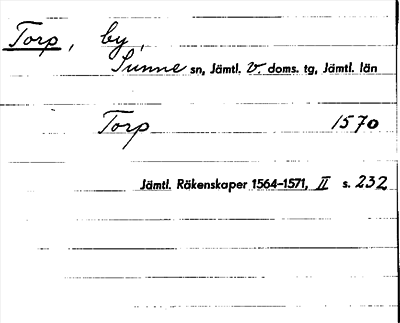 Torp, by,
Sunne sn, Jämtl. V. doms. tg, Jämtl. län
Torp 1570
Jämtl. Räkenskaper 1564-1571, II s. 232